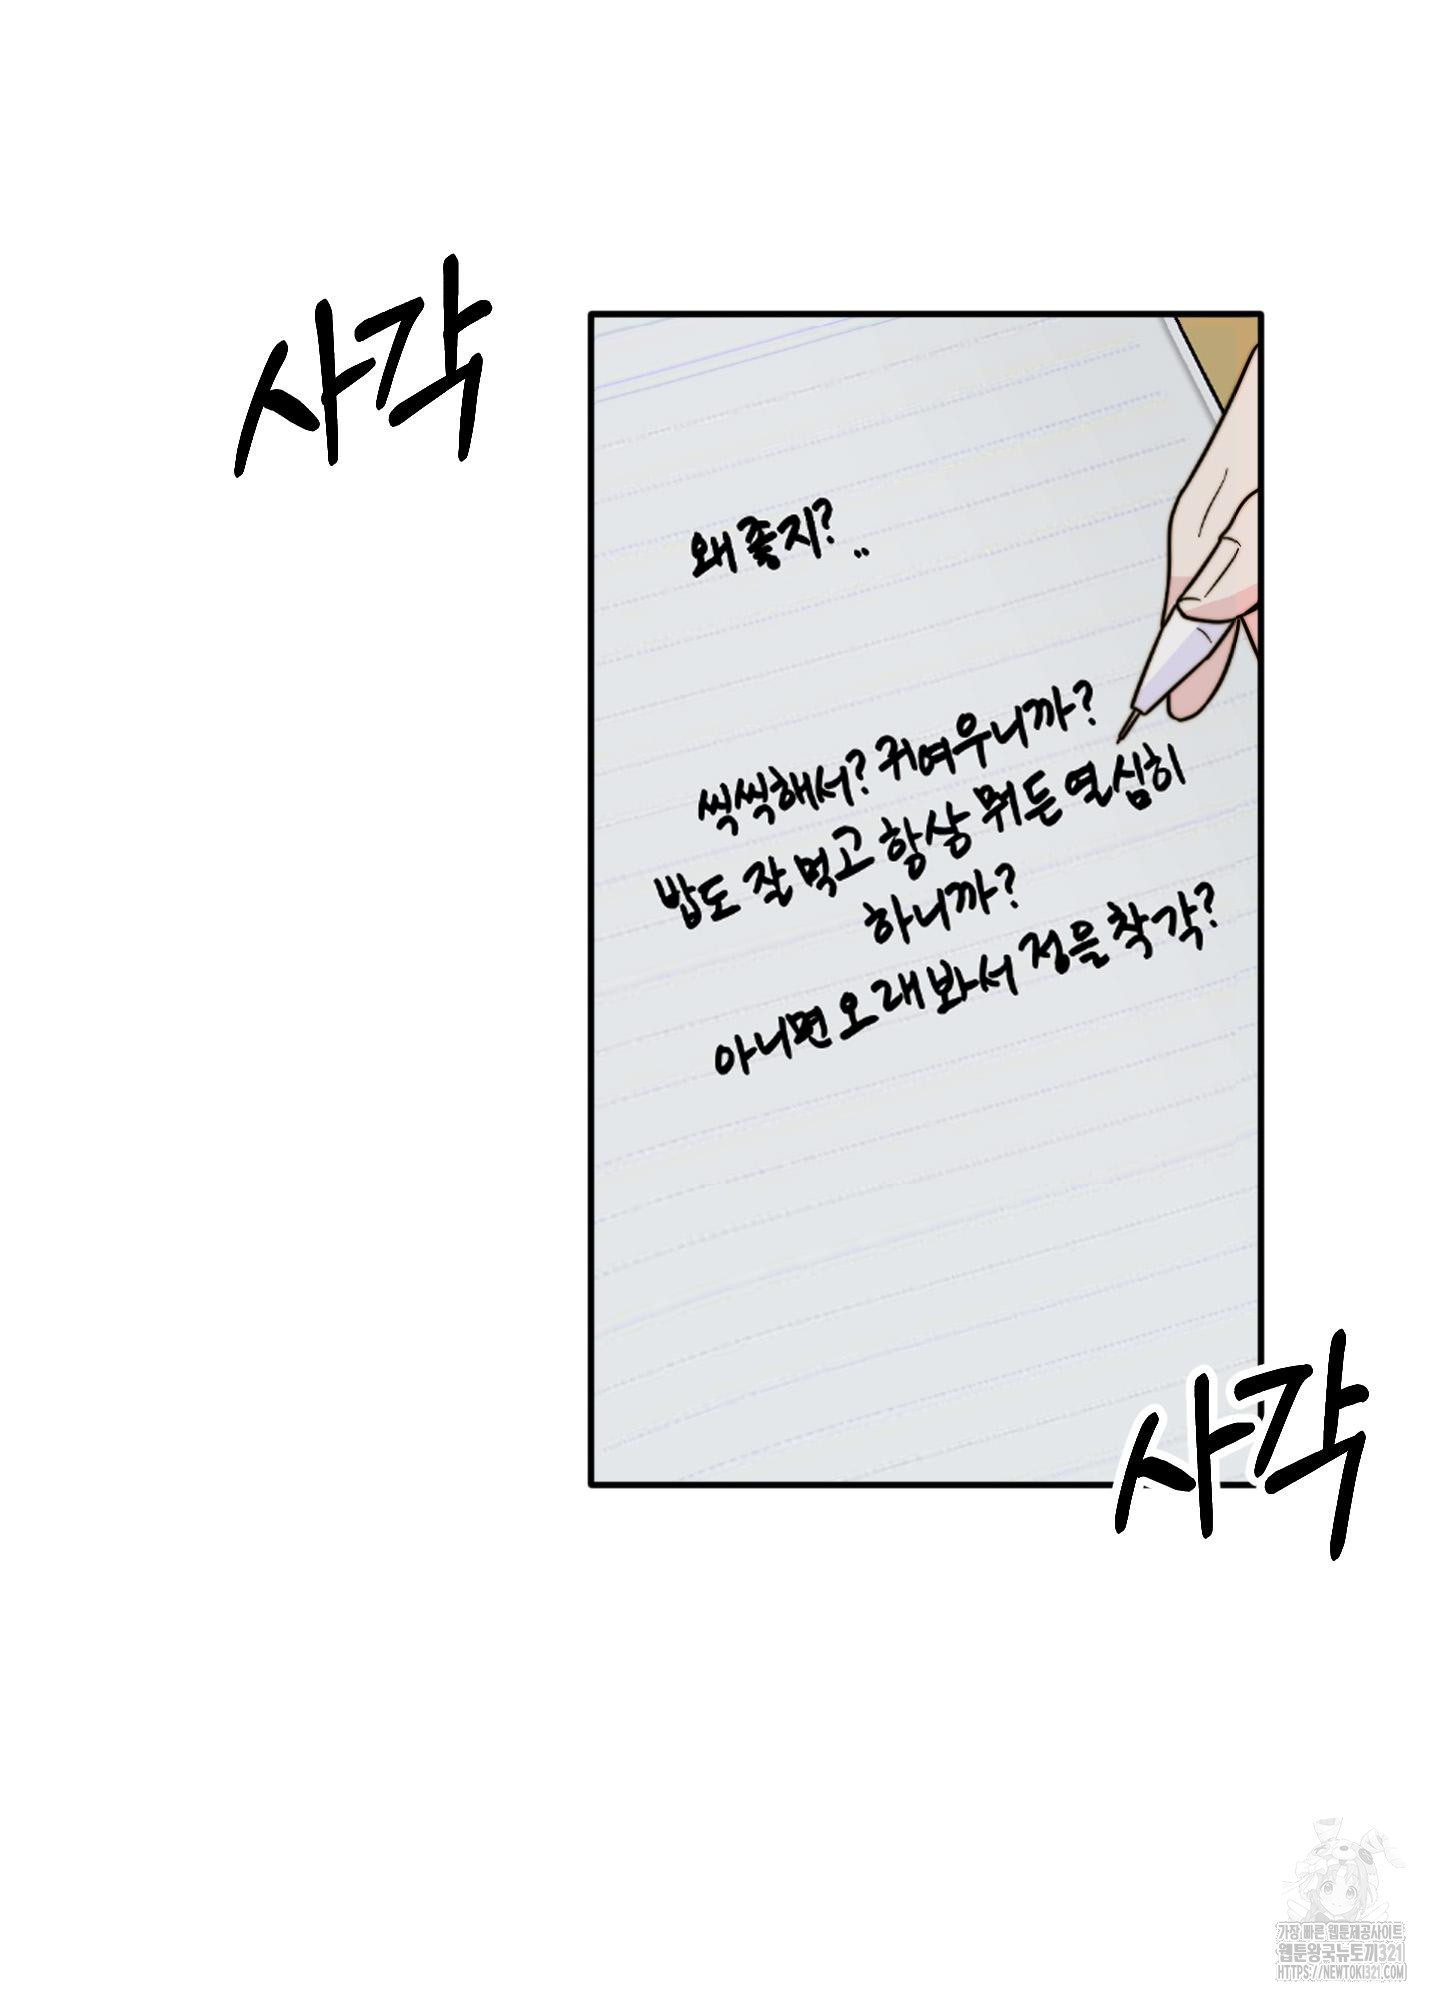 사각
왜 좋지? ..
씩씩해서? 귀여우니까?
밥도 잘 먹고 항상 뭐든 열심히
하니까?
아니면 오래 봐서 정을 착각?
사각
가장 빠른 웹툰제공사이트
웹툰왕국뉴토끼321
HTTPS://NEWTOKI321.COM